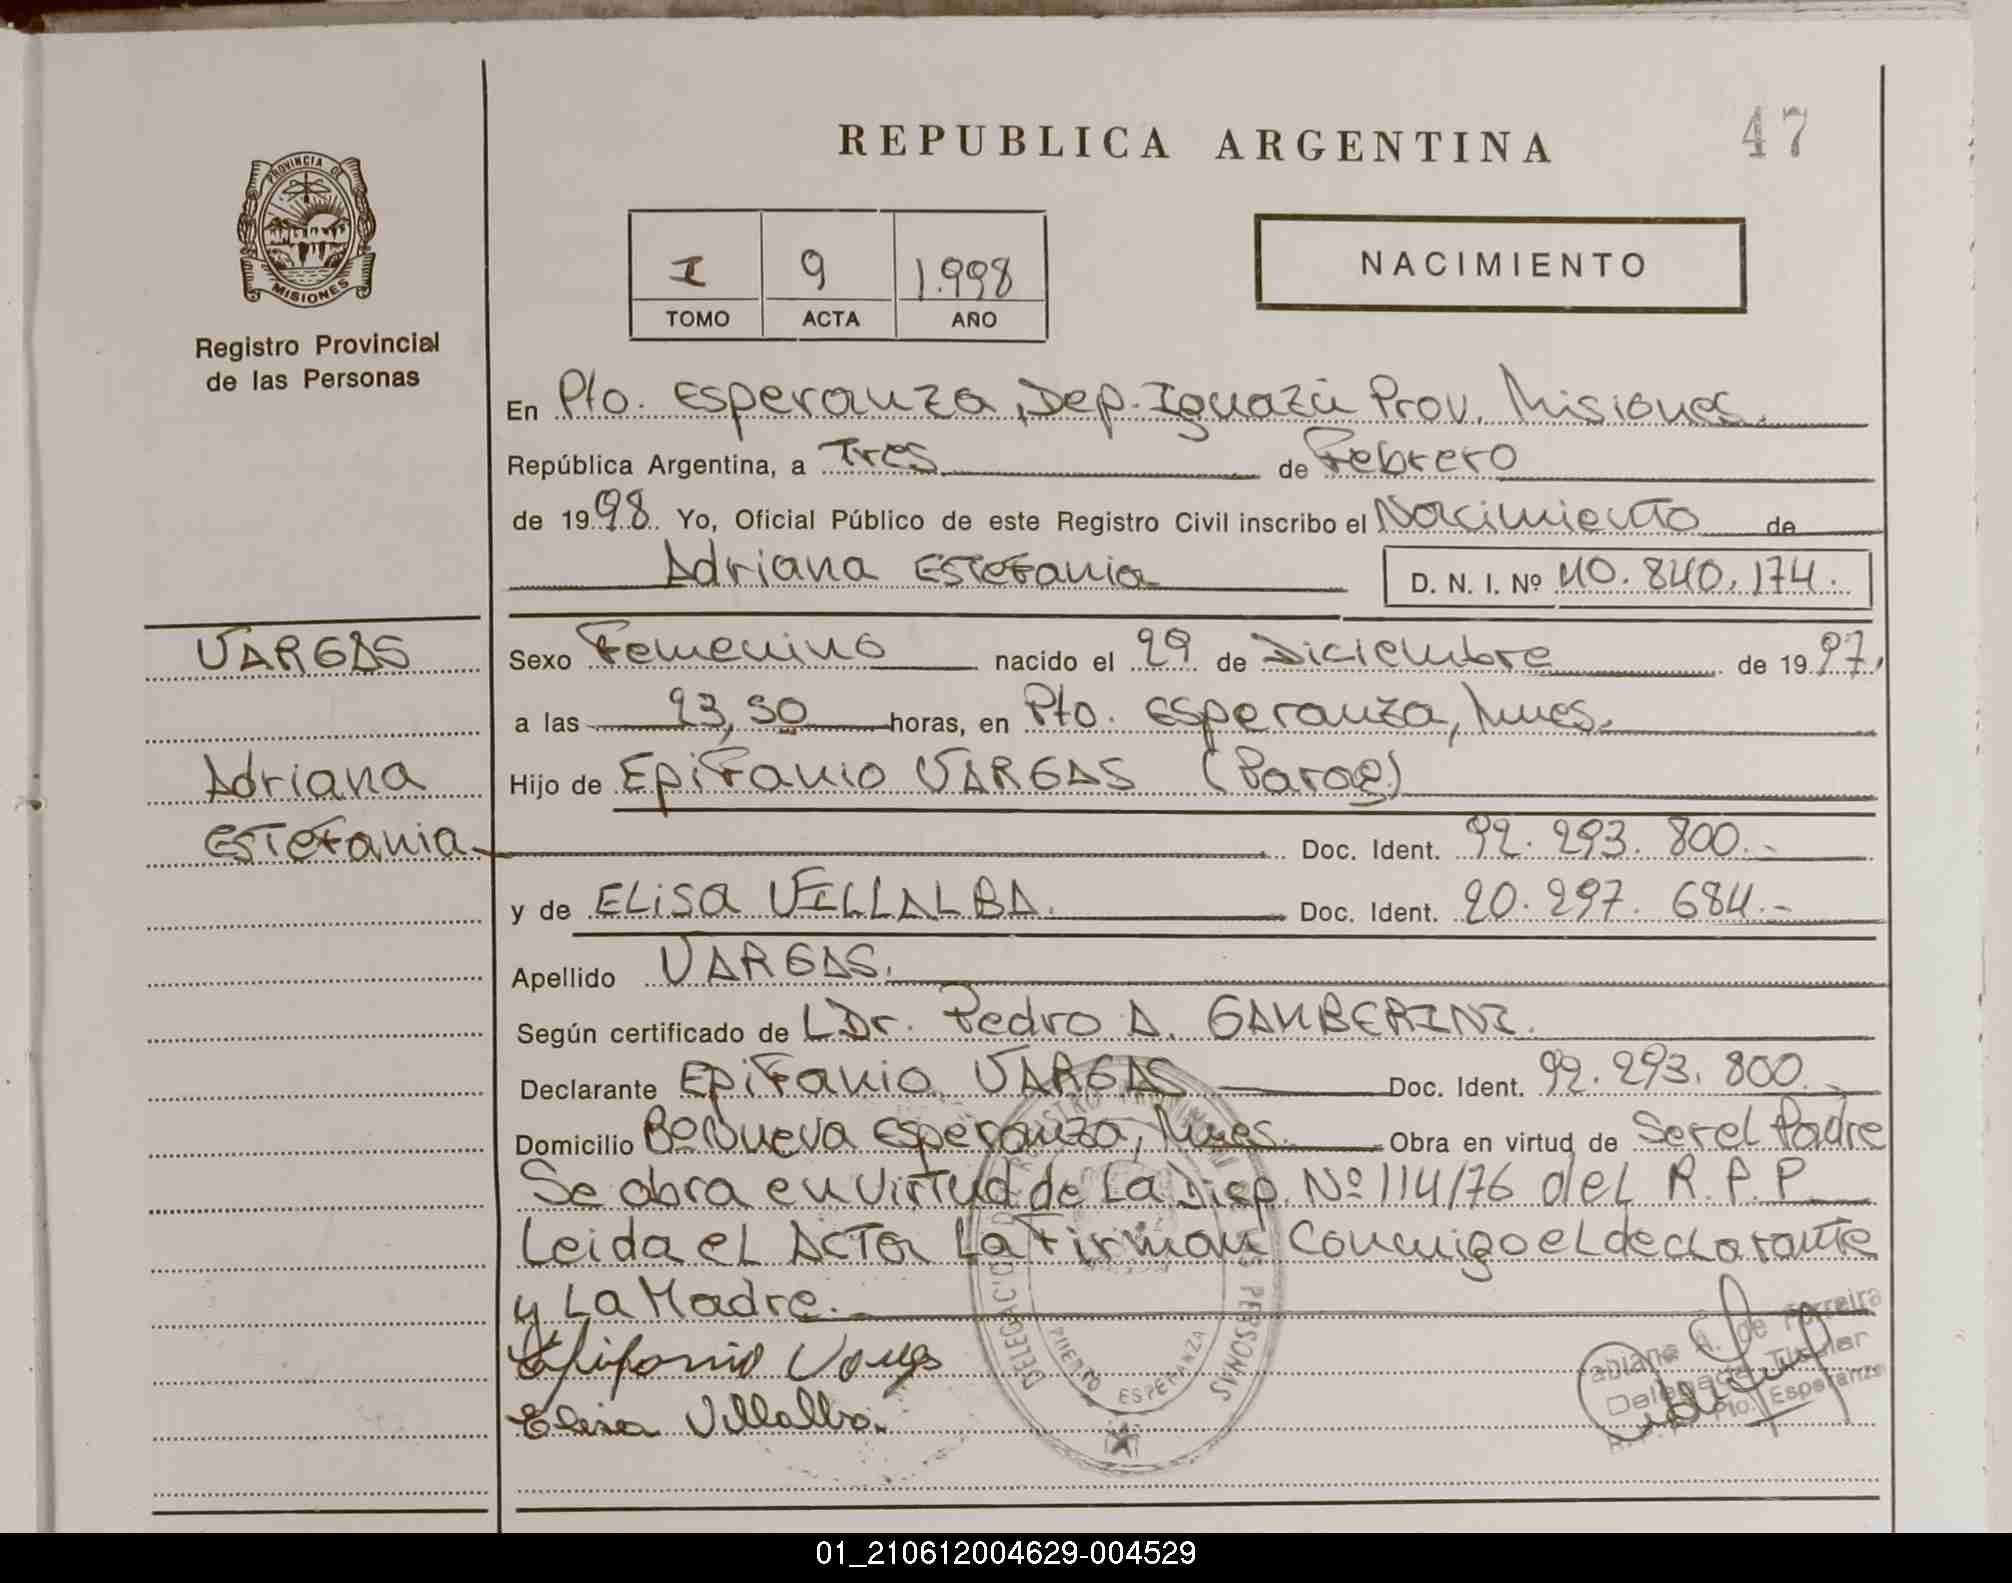 REPUBLICA ARGENTINA
47
PROVINCIA DE
MISIONES
Registro Provincial
de las Personas
I 9 1.998
TOMO ACTA AÑO
NACIMIENTO
En Pto. Esperanza, Dep. Iguazú Prov. Misiones.
República Argentina, a Tres de Febrero
de 1998. Yo, Oficial Público de este Registro Civil inscribo el Nacimiento de
Adriana Estefania D. N. I. Nº 40.840.174.
VARGAS
Adriana
Estefania
Sexo Femenino nacido el 29 de Diciembre de 1997,
a las 23,50 horas, en Pto. Esperanza, Mnes.
Hijo de Epifanio VARGAS (Parag)
Doc. Ident. 92.293.800.-
y de Elisa VILLALBA. Doc. Ident. 20.297.684.-
Apellido VARGAS.
Según certificado de LDr. Pedro A. GAMBERINI.
Declarante Epifanio VARGAS Doc. Ident. 92.293.800.
Domicilio Bº Nueva Esperanza, Mnes. Obra en virtud de Ser el Padre
Se obra en virtud de La Disp. Nº 114/76 del R.P.P
Leida el Acta La Firman Conmigo el declarante
y La Madre.
Epifanio Vargas
Elisa Villalba.
DELEGACION
PERSONAS
PUERTO ESPERANZA
A. de Ferreira
Delegada Titular
Pto. Esperanza
01_210612004629-004529